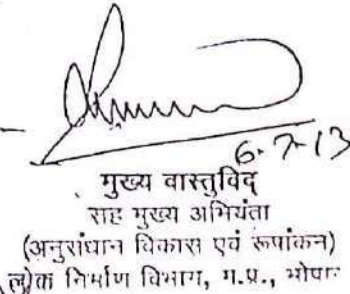 6-7-13
मुख्य वास्तुविद्
सह मुख्य अभियंता
(अनुसंधान विकास एवं रूपांकन)
लोक निर्माण विभाग, म.प्र., भोपाल